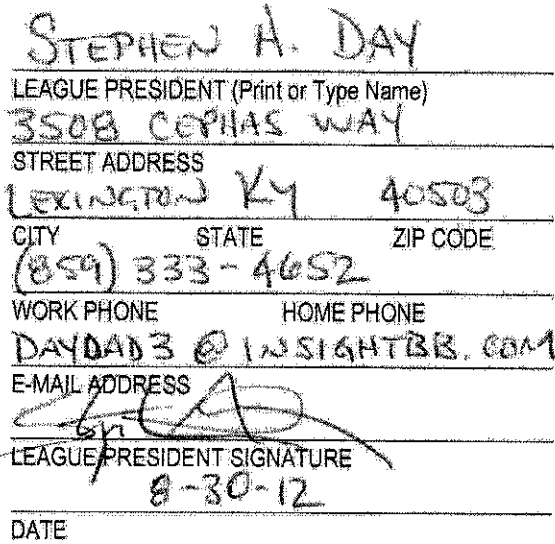 STEPHEN A. DAY
LEAGUE PRESIDENT (Print or Type Name)
3508 CEPHAS WAY
STREET ADDRESS
LEXINGTON KY 40503
CITY STATE ZIP CODE
(859) 333-4652
WORK PHONE HOME PHONE
DAYDAD3@INSIGHTBB.COM
E-MAIL ADDRESS
LEAGUE PRESIDENT SIGNATURE
8-30-12
DATE